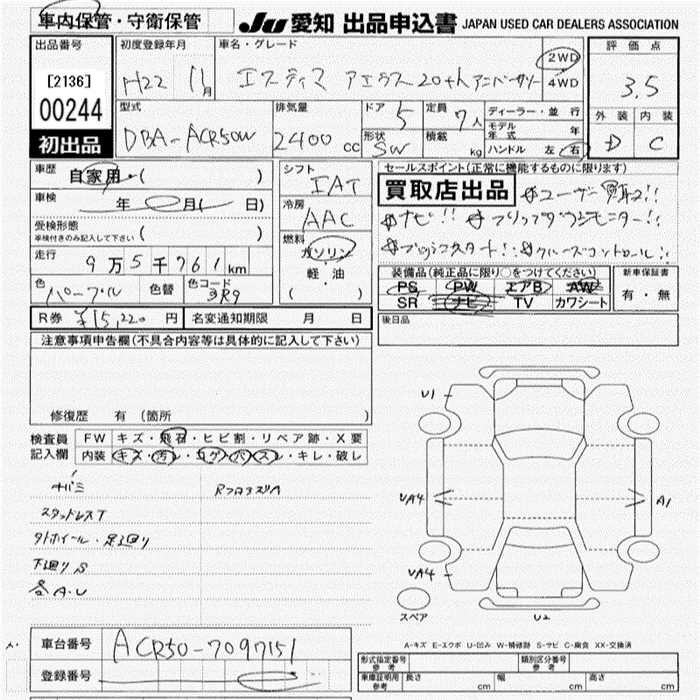 車内保管・守衛保管
JU 愛知 出品申込書 JAPAN USED CAR DEALERS ASSOCIATION
出品番号 初度登録年月 車名・グレード 評価点
[2136] H22 11月 エスティマ アエラス20thアニバーサリー 2WD 4WD 3.5
00244
初出品
型式 排気量 ドア 定員 ディーラー・並行 外装 内装
DBA-ACR50W 2400cc 5 7人 モデル年式 年 D C
形状 SW 積載 kg ハンドル 左 右
車歴 自家用・( ) シフト IAT セールスポイント(正常に機能するものに限ります)
買取店出品 #ユーザー買取!!
車検 年 月( 日) 冷房 AAC
#ナビ!! #フリップダウンモニター!!
受検形態 ( )
車検付きのみ記入して下さい
燃料 ガソリン・軽・油 ( )
#プッシュスタート!! #クルーズコントロール!!
走行 9万5千761km
装備品(純正品に限り○をつけてください) 新車保証書
PS PW エアB AW 有・無
SR ナビ TV カワシート
色 パープル 色替 色コード 3R9
R券 ¥15,220円 名変通知期限 月 日 後日品
注意事項申告欄(不具合内容等は具体的に記入して下さい)
修復歴 有 (箇所 )
検査員記入欄 FW キズ・飛石・ヒビ割・リペア跡・X要
内装 キズ・汚レ・コゲ・穴・スレ・キレ・破レ
スタッドレスT
下廻りS
各A・U
U1
UA4 A1
UA4
スペア U2
A-キズ E-エクボ U-凹み W-補修跡 S-サビ C-腐食 XX-交換済
車台番号 ACR50-7097151
登録番号
形式指定番号 参考 類別区分番号 参考
車庫証明用 参考 長さ cm 幅 cm 高さ cm